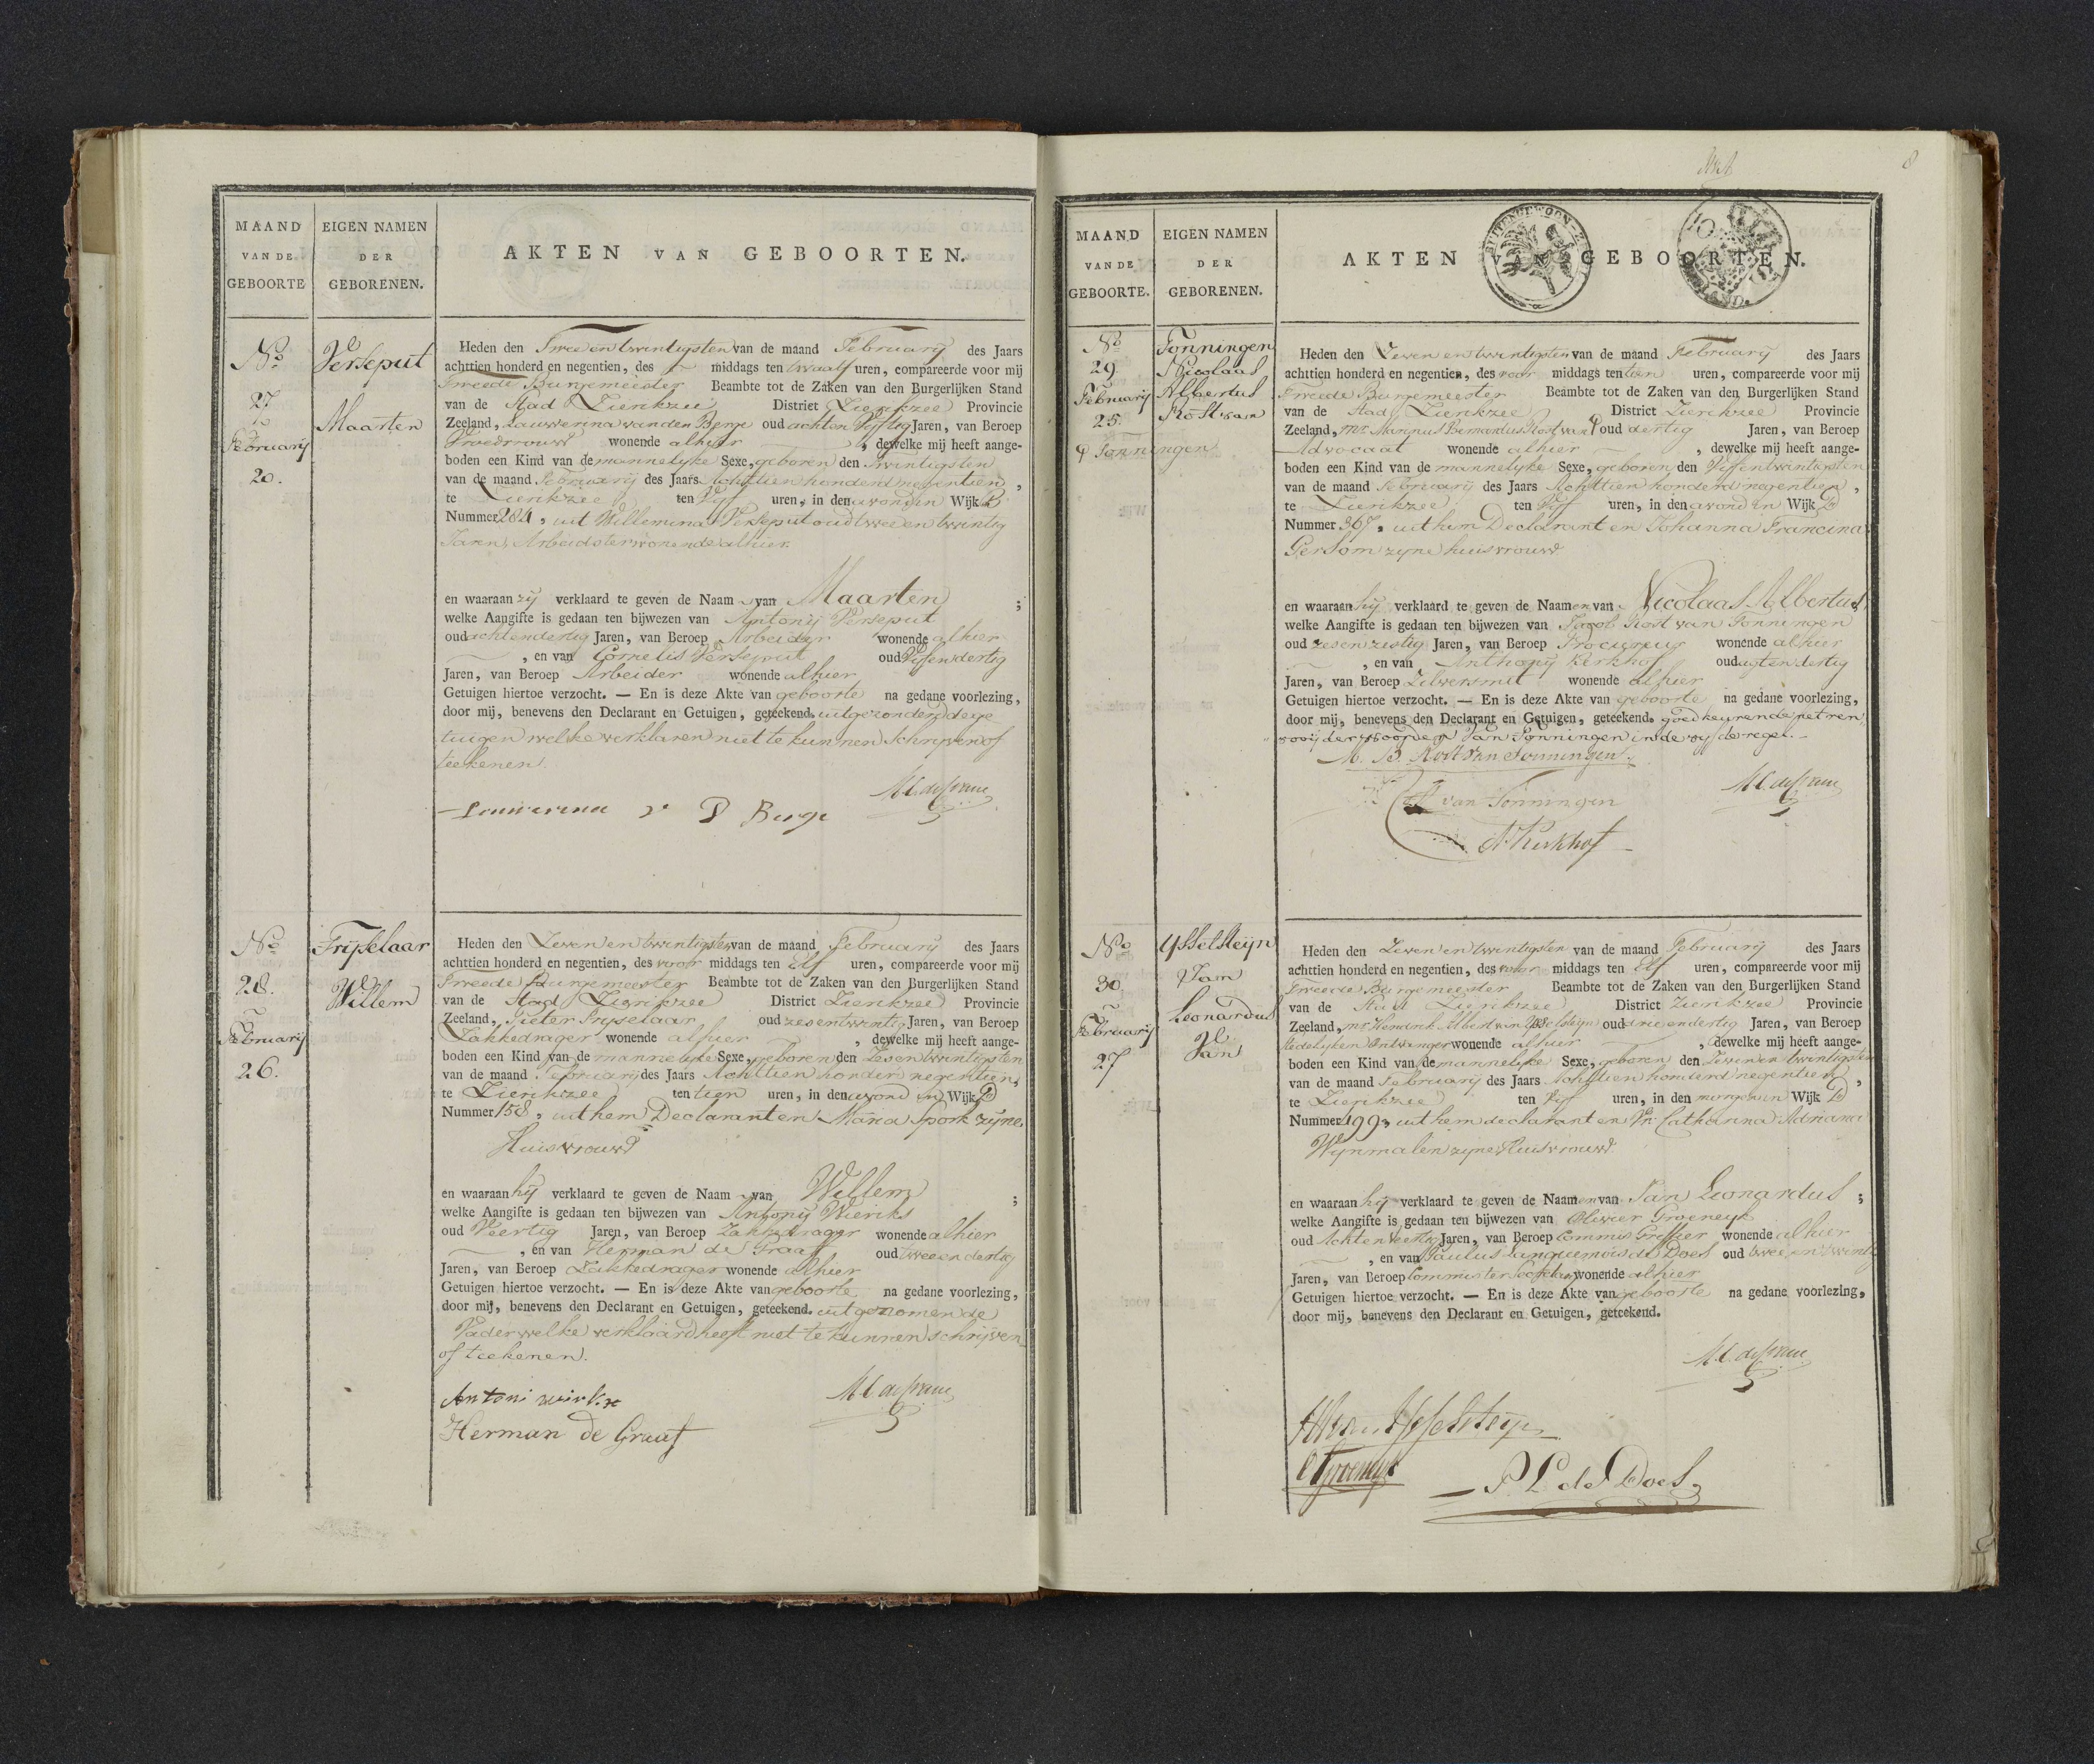 MAAND
VAN DE
GEBOORTE
EIGEN NAMEN
DER
GEBORENEN.
AKTEN VAN GEBOORTEN.
No
27
Februarij
20.
Verseput
Maarten
Heden den Twee en twintigsten van de maand Februarij des Jaars
achttien honderd en negentien, des middags ten twaalf uren, compareerde voor mij
Tweede Burgemeester Beambte tot de Zaken van den Burgerlijken Stand
van de Stad Zierikzee District Zierikzee Provincie
Zeeland, Lauwerina van den Berge oud acht en Vyftig Jaren, van Beroep
Vroedvrouw wonende alhier , dewelke mij heeft aange-
boden een Kind van de mannelyke Sexe, geboren den Twintigsten
van de maand Februarij des Jaars Achttien honderd negentien ,
te Zierikzee ten Vyf uren, in den avond in Wijk B
Nummer 284, uit Willemina Verseput oud twee en twintig
Jaren, Arbeidster wonende alhier.
en waaraan zij verklaard te geven de Naam van Maarten ;
welke Aangifte is gedaan ten bijwezen van Antonij Verseput
oud acht en dertig Jaren, van Beroep Arbeider wonende alhier
, en van Cornelis Verseput oud Vyf en dertig
Jaren, van Beroep Arbeider wonende alhier
Getuigen hiertoe verzocht. — En is deze Akte van geboorte na gedane voorlezing,
door mij, benevens den Declarant en Getuigen, geteekend. uitgezonderd de ge
tuigen welke verklaren niet te kunnen Schryven of
teekenen.
No
28.
Februarij
26.
Fryselaar
Willem
Heden den Zeven en twintigsten van de maand Februarij des Jaars
achttien honderd en negentien, des voor middags ten Elf uren, compareerde voor mij
Tweede Burgemeester Beambte tot de Zaken van den Burgerlijken Stand
van de Stad Zierikzee District Zierikzee Provincie
Zeeland, Pieter Fryselaar oud zes en twintig Jaren, van Beroep
Zakkedrager wonende alhier , dewelke mij heeft aange-
boden een Kind van de mannelyke Sexe, geboren den Zes en twintigsten
van de maand Februarij des Jaars Achttien honderd negentien,
te Zierikzee ten tien uren, in den avond in Wijk D
Nummer 158, uit hem Declarant en Maria Spork zyne
Huisvrouw
en waaraan hij verklaard te geven de Naam van Willem ;
welke Aangifte is gedaan ten bijwezen van Antonij Wieriks
oud Veertig Jaren, van Beroep Zakkedrager wonende alhier
, en van Herman de Graaf oud twee en dertig
Jaren, van Beroep Zakkedrager wonende alhier
Getuigen hiertoe verzocht. — En is deze Akte van geboorte na gedane voorlezing,
door mij, benevens den Declarant en Getuigen, geteekend. uitgenomen de
Vader welke verklaard heeft niet te kunnen schrijven
of teekenen.
Antoni
Herman de Graaf
8
MAAND
VAN DE
GEBOORTE.
EIGEN NAMEN
DER
GEBORENEN.
AKTEN VAN GEBOORTEN.
No
29.
Februarij
25.
Tonningen
Nicolaas
Albertus
Rost van
Tonningen
Heden den Zeven en twintigsten van de maand Februarij des Jaars
achttien honderd en negentien, des voor middags ten tien uren, compareerde voor mij
Tweede Burgemeester Beambte tot de Zaken van den Burgerlijken Stand
van de Stad Zierikzee District Zierikzee Provincie
Zeeland, Mr. Marinus Bernardus Rost van oud dertig Jaren, van Beroep
Advocaat wonende alhier , dewelke mij heeft aange-
boden een Kind van de mannelyke Sexe, geboren den Vyf en twintigsten
van de maand Februarij des Jaars Achttien honderd negentien ,
te Zierikzee ten Vyf uren, in den avond in Wijk D
Nummer 367, uit hem Declarant en Johanna Francina
Gersom zyne huisvrouw
en waaraan hij verklaard te geven de Naamen van Nicolaas Albertus
welke Aangifte is gedaan ten bijwezen van Jacob Rost van Tonningen
oud zes en zestig Jaren, van Beroep Procureur wonende alhier
, en van Anthony Kerkhof oud agt en dertig
Jaren, van Beroep Zilversmit wonende alhier
Getuigen hiertoe verzocht. — En is deze Akte van geboorte na gedane voorlezing,
door mij, benevens den Declarant en Getuigen, geteekend. goedkeurende het ren
vooij der woorden Van Tonningen in de vyfde regel.
M. B. Rost van Tonningen
van Tonningen
A Kerkhof
No
30
Februarij
27
Ysselsteyn
Jan
Leonardus
Van
Heden den Zeven en twintigsten van de maand Februarij des Jaars
achttien honderd en negentien, des voor middags ten Elf uren, compareerde voor mij
Tweede Burgemeester Beambte tot de Zaken van den Burgerlijken Stand
van de Stad Zierikzee District Zierikzee Provincie
Zeeland, Mr Hendrik Albert van Ysselsteyn oud drie en dertig Jaren, van Beroep
Stedelyken Ontvanger wonende alhier , dewelke mij heeft aange-
boden een Kind van de mannelyke Sexe, geboren den Zeven en twintigsten
van de maand Februarij des Jaars Achttien honderd negentien ,
te Zierikzee ten Vyf uren, in den morgen in Wijk D
Nummer 199, uit hem declarant en Vr. Catharina Adriana
Wynmalen zyne Huisvrouw
en waaraan hij verklaard te geven de Naamen van Jan Leonardus ;
welke Aangifte is gedaan ten bijwezen van Olivier Groeneyk
oud Acht en Veertig Jaren, van Beroep Commis Griffier wonende alhier
, en van Paulus de Does oud twee en twintig
Jaren, van Beroep Commis ter wonende alhier
Getuigen hiertoe verzocht. — En is deze Akte van geboorte na gedane voorlezing,
door mij, benevens den Declarant en Getuigen, geteekend.
O Groeneyk
P L de Does